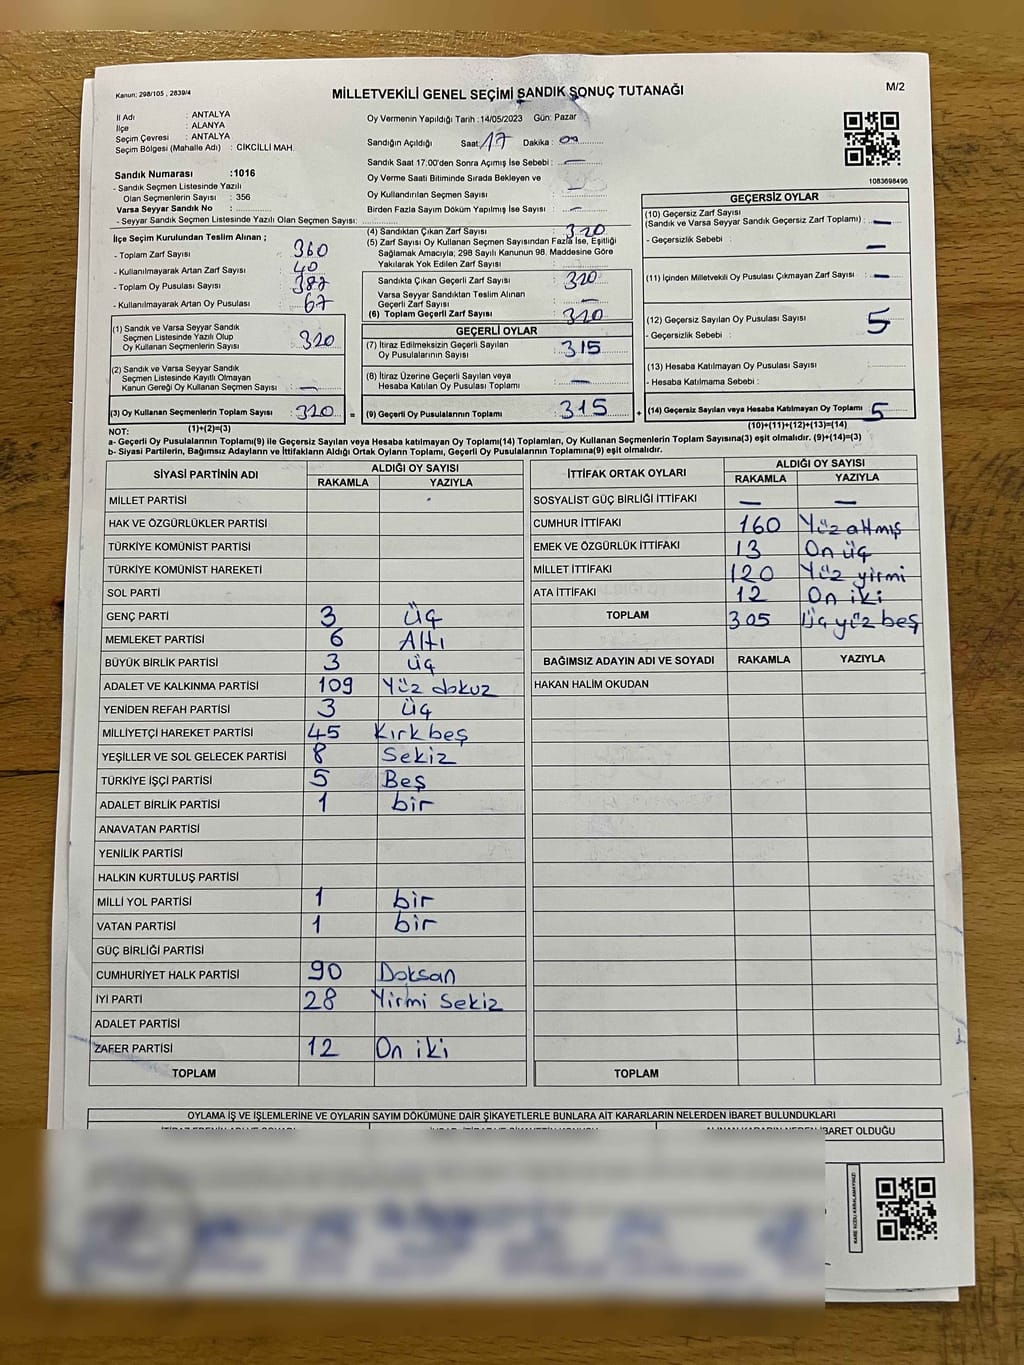 Kanun: 298/105 , 2839/4
MİLLETVEKİLİ GENEL SEÇİMİ SANDIK SONUÇ TUTANAĞI
M/2
İl Adı : ANTALYA
İlçe : ALANYA
Seçim Çevresi : ANTALYA
Seçim Bölgesi (Mahalle Adı) : CİKCİLLİ MAH.
Sandık Numarası :1016
- Sandık Seçmen Listesinde Yazılı
Olan Seçmenlerin Sayısı : 356
Varsa Seyyar Sandık No :
- Seyyar Sandık Seçmen Listesinde Yazılı Olan Seçmen Sayısı:
Oy Vermenin Yapıldığı Tarih :14/05/2023 Gün: Pazar
Sandığın Açıldığı Saat: 17 Dakika : 00
Sandık Saat 17:00'den Sonra Açımış İse Sebebi : —
Oy Verme Saati Bitiminde Sırada Bekleyen ve
Oy Kullandırılan Seçmen Sayısı —
Birden Fazla Sayım Döküm Yapılmış İse Sayısı : —
1083698496
İlçe Seçim Kurulundan Teslim Alınan ;
- Toplam Zarf Sayısı : 360
- Kullanılmayarak Artan Zarf Sayısı : 40
- Toplam Oy Pusulası Sayısı : 387
- Kullanılmayarak Artan Oy Pusulası : 67
(1) Sandık ve Varsa Seyyar Sandık
Seçmen Listesinde Yazılı Olup
Oy Kullanan Seçmenlerin Sayısı : 320
(2) Sandık ve Varsa Seyyar Sandık
Seçmen Listesinde Kayıtlı Olmayan
Kanun Gereği Oy Kullanan Seçmen Sayısı : —
(3) Oy Kullanan Seçmenlerin Toplam Sayısı : 320
(1)+(2)=(3)
(4) Sandıktan Çıkan Zarf Sayısı : 320
(5) Zarf Sayısı Oy Kullanan Seçmen Sayısından Fazla İse, Eşitliği
Sağlamak Amacıyla, 298 Sayılı Kanunun 98. Maddesine Göre
Yakılarak Yok Edilen Zarf Sayısı :
Sandıkta Çıkan Geçerli Zarf Sayısı : 320
Varsa Seyyar Sandıktan Teslim Alınan
Geçerli Zarf Sayısı : —
(6) Toplam Geçerli Zarf Sayısı : 320
GEÇERLİ OYLAR
(7) İtiraz Edilmeksizin Geçerli Sayılan
Oy Pusulalarının Sayısı : 315
(8) İtiraz Üzerine Geçerli Sayılan veya
Hesaba Katılan Oy Pusulası Toplamı : —
= (9) Geçerli Oy Pusulalarının Toplamı : 315
GEÇERSİZ OYLAR
(10) Geçersiz Zarf Sayısı
(Sandık ve Varsa Seyyar Sandık Geçersiz Zarf Toplamı) : —
- Geçersizlik Sebebi : —
(11) İçinden Milletvekili Oy Pusulası Çıkmayan Zarf Sayısı : —
(12) Geçersiz Sayılan Oy Pusulası Sayısı : 5
- Geçersizlik Sebebi :
(13) Hesaba Katılmayan Oy Pusulası Sayısı :
- Hesaba Katılmama Sebebi :
+ (14) Geçersiz Sayılan veya Hesaba Katılmayan Oy Toplamı : 5
(10)+(11)+(12)+(13)=(14)
NOT:
a- Geçerli Oy Pusulalarının Toplamı(9) ile Geçersiz Sayılan veya Hesaba katılmayan Oy Toplamı(14) Toplamları, Oy Kullanan Seçmenlerin Toplam Sayısına(3) eşit olmalıdır. (9)+(14)=(3)
b- Siyasi Partilerin, Bağımsız Adayların ve İttifakların Aldığı Ortak Oyların Toplamı, Geçerli Oy Pusulalarının Toplamına(9) eşit olmalıdır.
SİYASİ PARTİNİN ADI
ALDIĞI OY SAYISI
RAKAMLA YAZIYLA
MİLLET PARTİSİ
HAK VE ÖZGÜRLÜKLER PARTİSİ
TÜRKİYE KOMÜNİST PARTİSİ
TÜRKİYE KOMÜNİST HAREKETİ
SOL PARTİ
GENÇ PARTİ 3 Üç
MEMLEKET PARTİSİ 6 Altı
BÜYÜK BİRLİK PARTİSİ 3 üç
ADALET VE KALKINMA PARTİSİ 109 Yüz dokuz
YENİDEN REFAH PARTİSİ 3 üç
MİLLİYETÇİ HAREKET PARTİSİ 45 Kırk beş
YEŞİLLER VE SOL GELECEK PARTİSİ 8 Sekiz
TÜRKİYE İŞÇİ PARTİSİ 5 Beş
ADALET BİRLİK PARTİSİ 1 bir
ANAVATAN PARTİSİ
YENİLİK PARTİSİ
HALKIN KURTULUŞ PARTİSİ
MİLLİ YOL PARTİSİ 1 bir
VATAN PARTİSİ 1 bir
GÜÇ BİRLİĞİ PARTİSİ
CUMHURİYET HALK PARTİSİ 90 Doksan
İYİ PARTİ 28 Yirmi Sekiz
ADALET PARTİSİ
ZAFER PARTİSİ 12 On iki
TOPLAM
İTTİFAK ORTAK OYLARI
ALDIĞI OY SAYISI
RAKAMLA YAZIYLA
SOSYALİST GÜÇ BİRLİĞİ İTTİFAKI — —
CUMHUR İTTİFAKI 160 Yüz altmış
EMEK VE ÖZGÜRLÜK İTTİFAKI 13 On üç
MİLLET İTTİFAKI 120 Yüz yirmi
ATA İTTİFAKI 12 On iki
TOPLAM 305 Üç yüz beş
BAĞIMSIZ ADAYIN ADI VE SOYADI RAKAMLA YAZIYLA
HAKAN HALİM OKUDAN
TOPLAM
OYLAMA İŞ VE İŞLEMLERİNE VE OYLARIN SAYIM DÖKÜMÜNE DAİR ŞİKAYETLERLE BUNLARA AİT KARARLARIN NELERDEN İBARET BULUNDUKLARI
İBARET OLDUĞU
KARE KODU KARALAMAYINIZ!